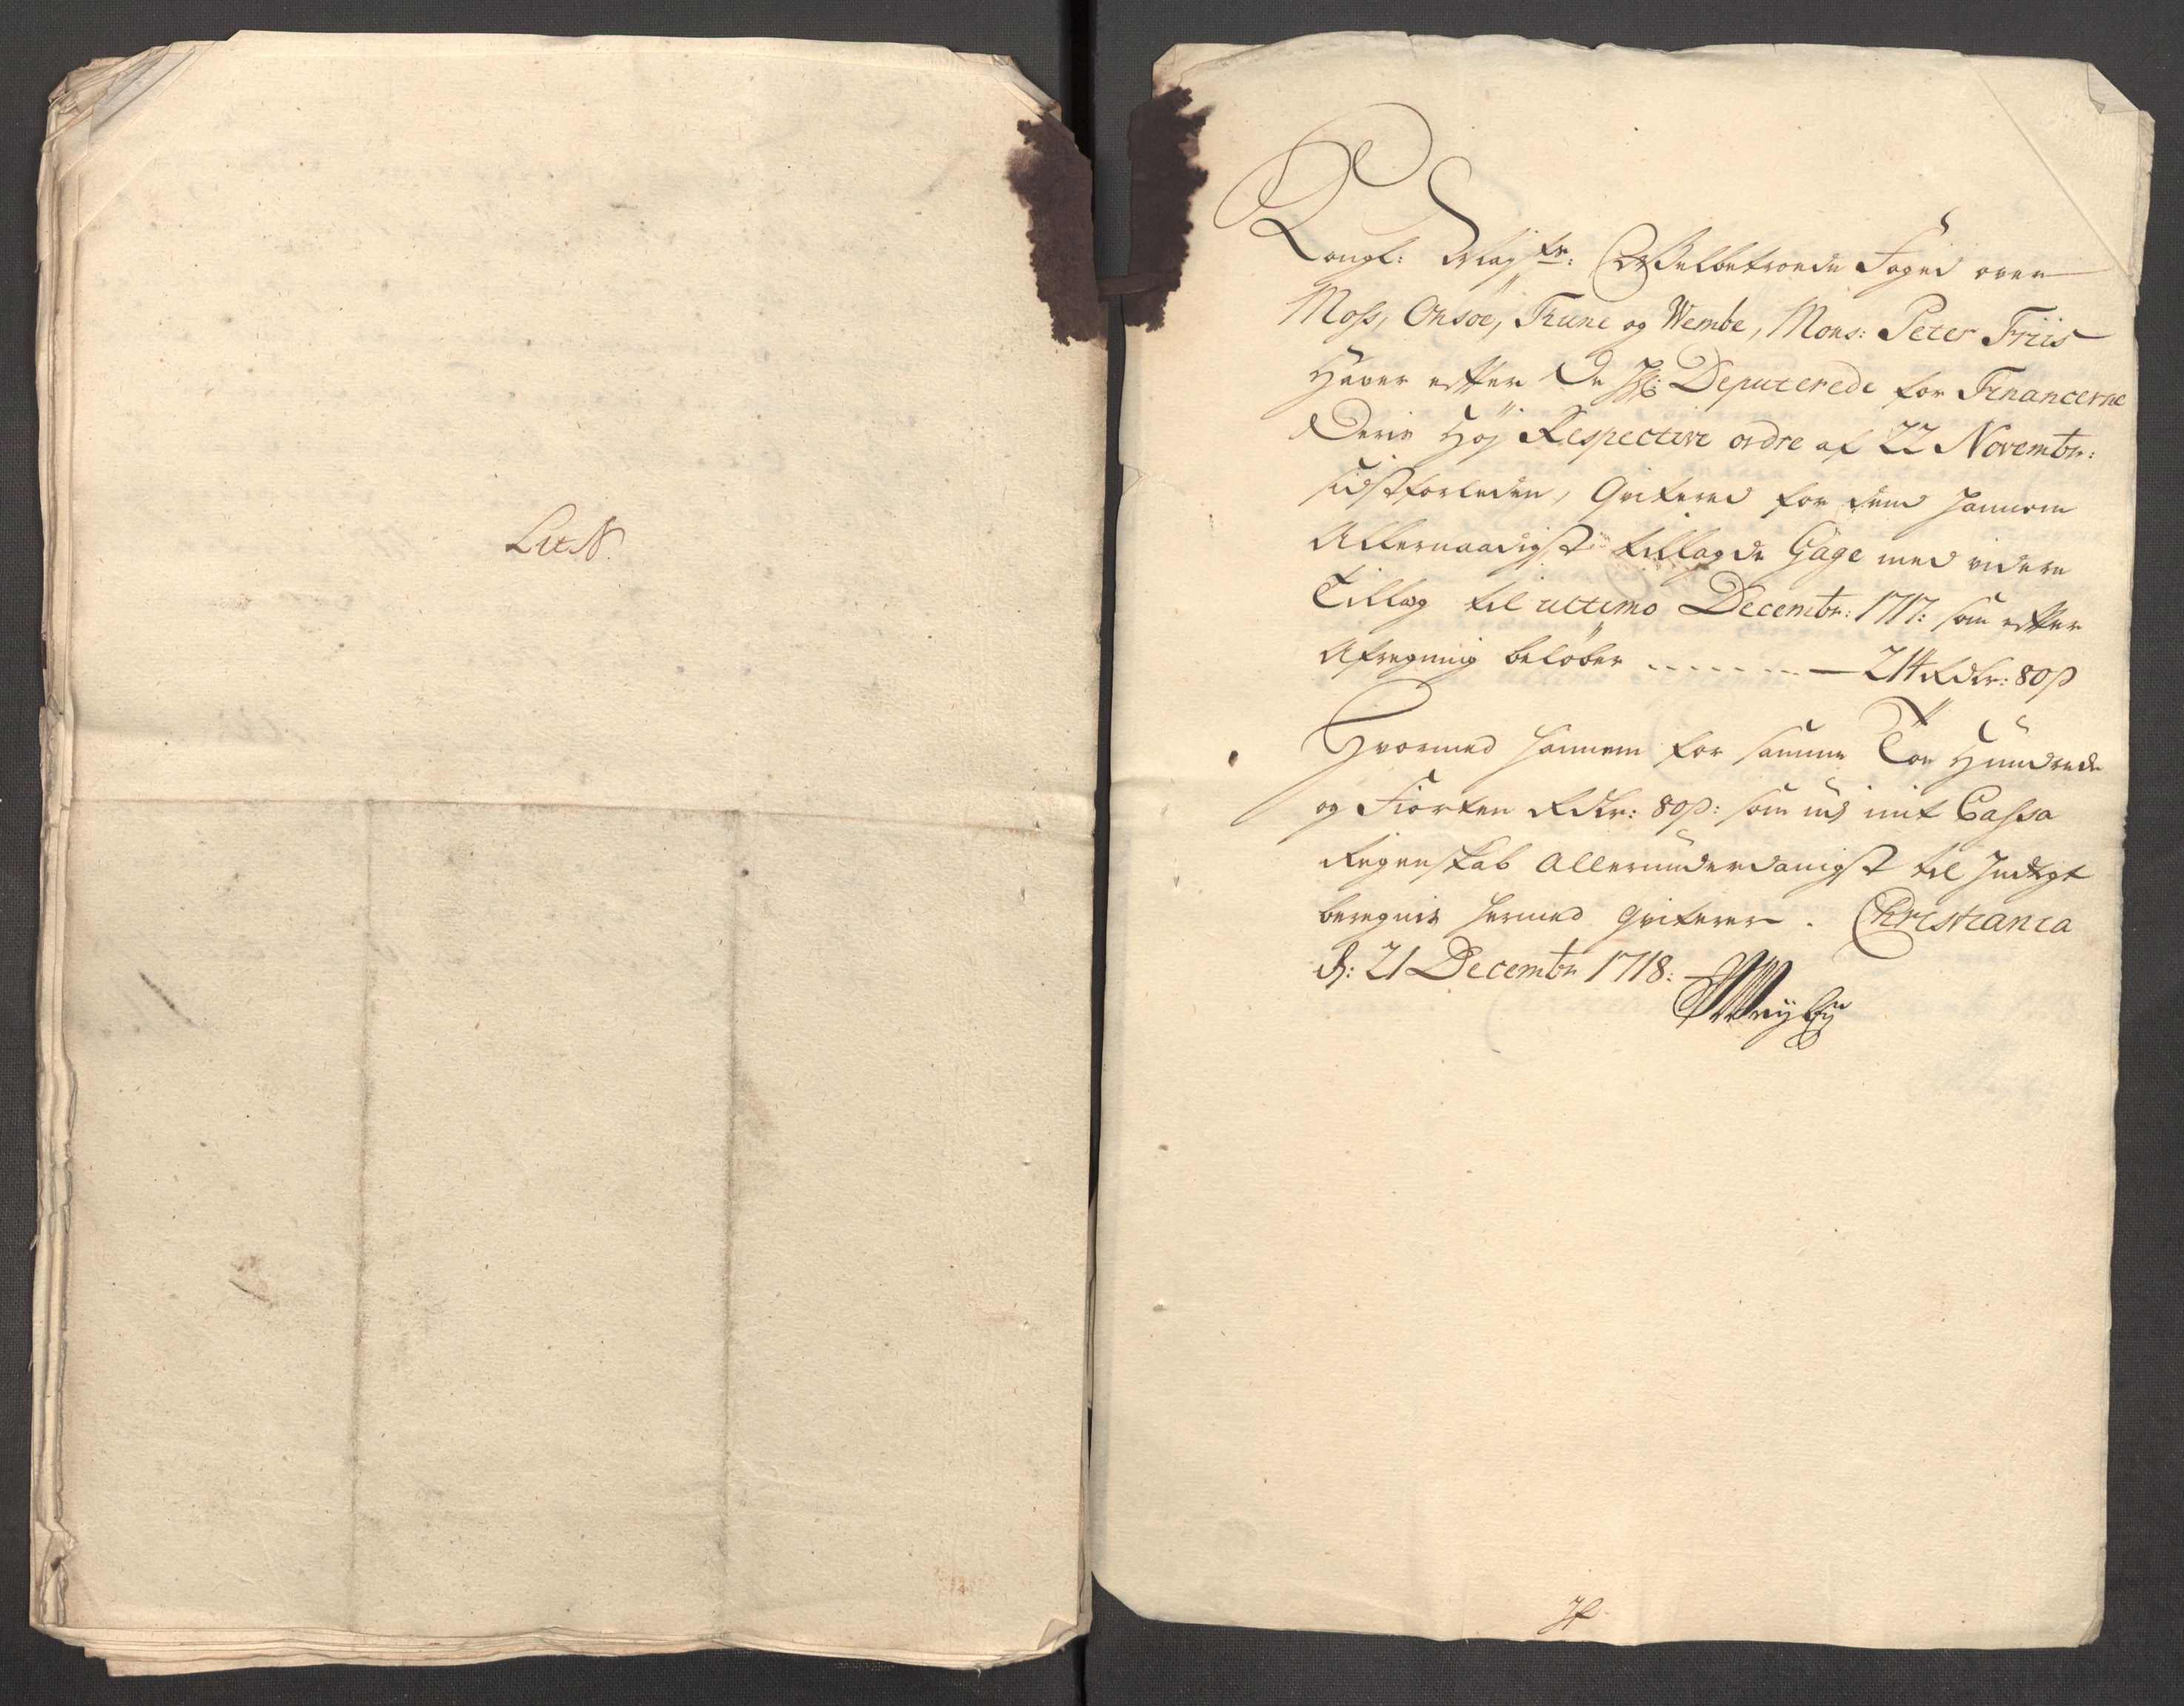 Lit: N.
Kongl: Maÿts: Velbetroede Foged over
Moss, Onsöe, Tune og Wembe, Mons: Peter Friis
Haver efter De Hh: Deputerede for Financerne
Deris Höj Respective ordre af 22 Novembr:
sidstforleden, Qvitered for dend hannem
Allernaadigst tillagde Gage med videre
Tillæg til ultimo Decembr: 1717: som efter
Afregning beløber - - - - - - - 214 Rdlr: 80 s
Hvormed hannem for samme Toe Hundrede
og Fiorten Rdlr: 80 s: som udj mit Cassa
Regenskab Allerunderdanigst til Indtegt
beregnis hermed Qviterer. Christiania
d: 21 Decembr 1718: